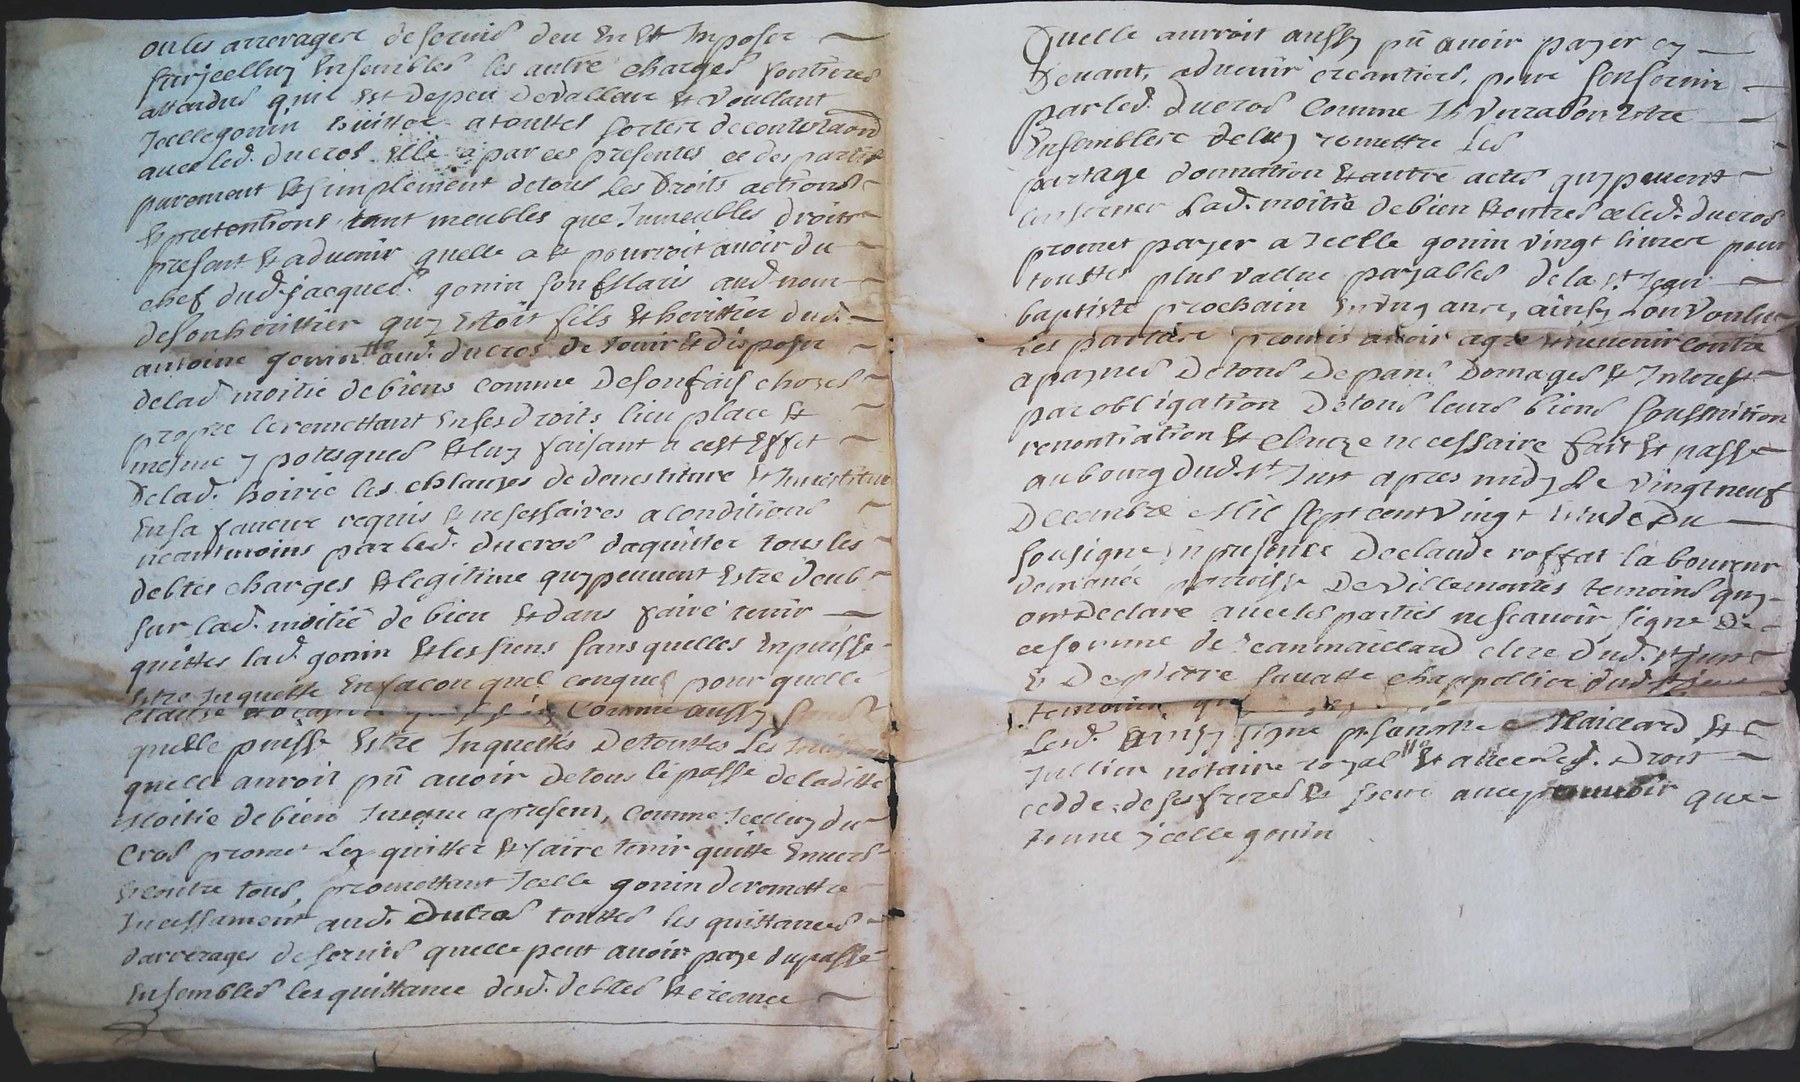 ou les arrerages de servis deu En Et Imposer
sur jcelluy Ensembles les autre charges fontieres
attandus que Est de peu de valleur Et voullant
Jcelle gonin Euitter a touttes sortere de contestaon
auec led. ducros Elle a par ces presentes ce des partis
purement Et simplement de tous les Droits actions
Et pretentions tant meubles que Jmeubles droits
present Et aduenir quelle a Et pourroit auoir du
chef dud. jacques gonin son Maris aud nom
de son herittier quy Estois fils Et herittier dud.
antoine gonin aud. ducros de Jouir Et disposer
de lad. moitié de biens comme de son fais chozes
propre le remettant En ses droits lieu place Et
mesme ypotesques Et luy faisant a cest Effet
De lad. hoirie les chlauzes de deuestiture Et Jnuestiture
En sa faueur requis Et nesessaires a conditions
neantmoins par led. ducros daquitter tous les
debtes charges Et legitime quy peuuent Estre deub
sur lad. moitié de bien Et dans faire tenir
quittes lad. gonin Et les siens sans quelles En puisse
Estre Jnquette En facon quel conque pour quelle
clause Comme aussy sans
quelle puisse Estre Jnquettes De touttes Les
quelle auroit pû auoir de tous le passé de laditte
Moitié de bien Jusque a present, Comme Jcelluy du
Cros promet Les quitter Et faire tenir quitte Enuers
Et contre tous, promettant Jcelle gonin de remettre
Jncessament aud. Ducros touttes les quittances
darrerages de servis quelle peut auoir paye du passé
Ensembles les quittance desd. debtes Et creance
Quelle auroit aussy pû auoir payer cy
Deuant, aduenir creantiers, pour sen seruir
par led. Ducros Comme Jl verra bon Estre
Ensemblere de luy remettre Les
partage donnation Et autre actes quy peuuent
conserner Lad. moitié de bien Et entres ce led. ducros
promet payer a Jcelle gonin vingt liures pour
touttes plus vallue payables de la st Jean
baptiste prochain En vng ance, ainsy Lon Voulue
les parties promis auoir agre Et ne uenir contre
a paynes De tous Depans Domages Et Jnterest
par obligation De tous leurs biens soubmition
renontiation Et clauze necessaire fait Et passé
au bourg dud. st Just apres midy Le vingt neuf
Decembre Mil sept cent vingt Du
sousigne En presence De claude roffat laboureur
De parroisse De Villemontes temoins quy
ont Declaré auec les parties ne scauoir signe De
ce somme de Jean maillard clerc dud. st just
Et De pierre chappellier dud. st just
temoins
Lesd. signe Maillard Et
Jullien notaire royal Et auec led. Droit
cedde de ses freres Et seur que
Jcelle gonin